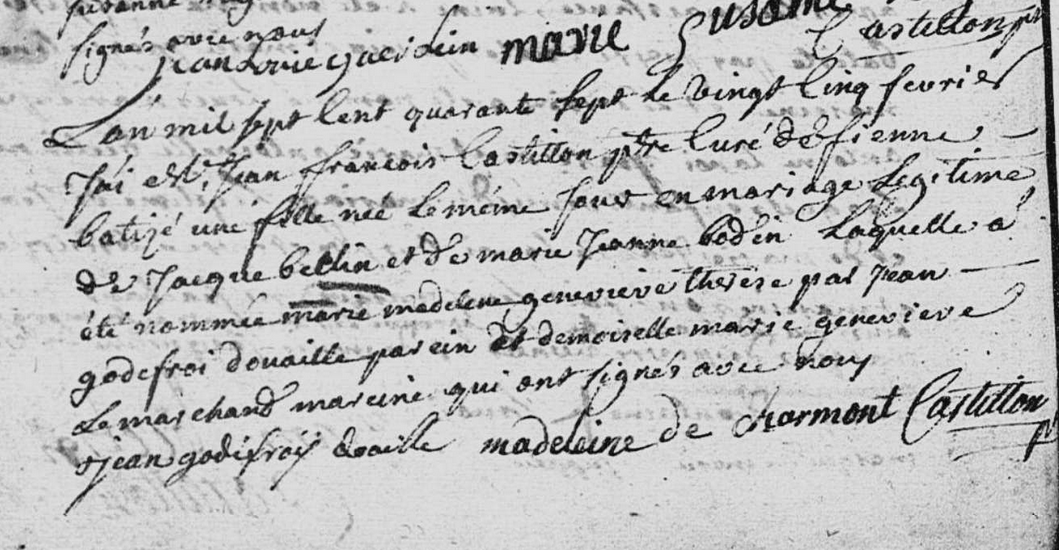 susanne
signés avec nous
jean Louie marie Susanne Castillon ptr
L'an mil sept Cent quarante sept le vingt Cinq fevrier
Jai Jean francois Castillon ptre Curé de fienne
batizé une fille neé le méme jour en mariage Legitime
de Jacque bellin et de marie Jeanne bodin Laquelle a
été nommée marie madelene genevieve therese par Jean
godefroi douaille parein et demoiselle marie genevieve
Lemarchand mareine qui ont signés avec nous
jean godefroij doaille madeleine de Charmont Castillon